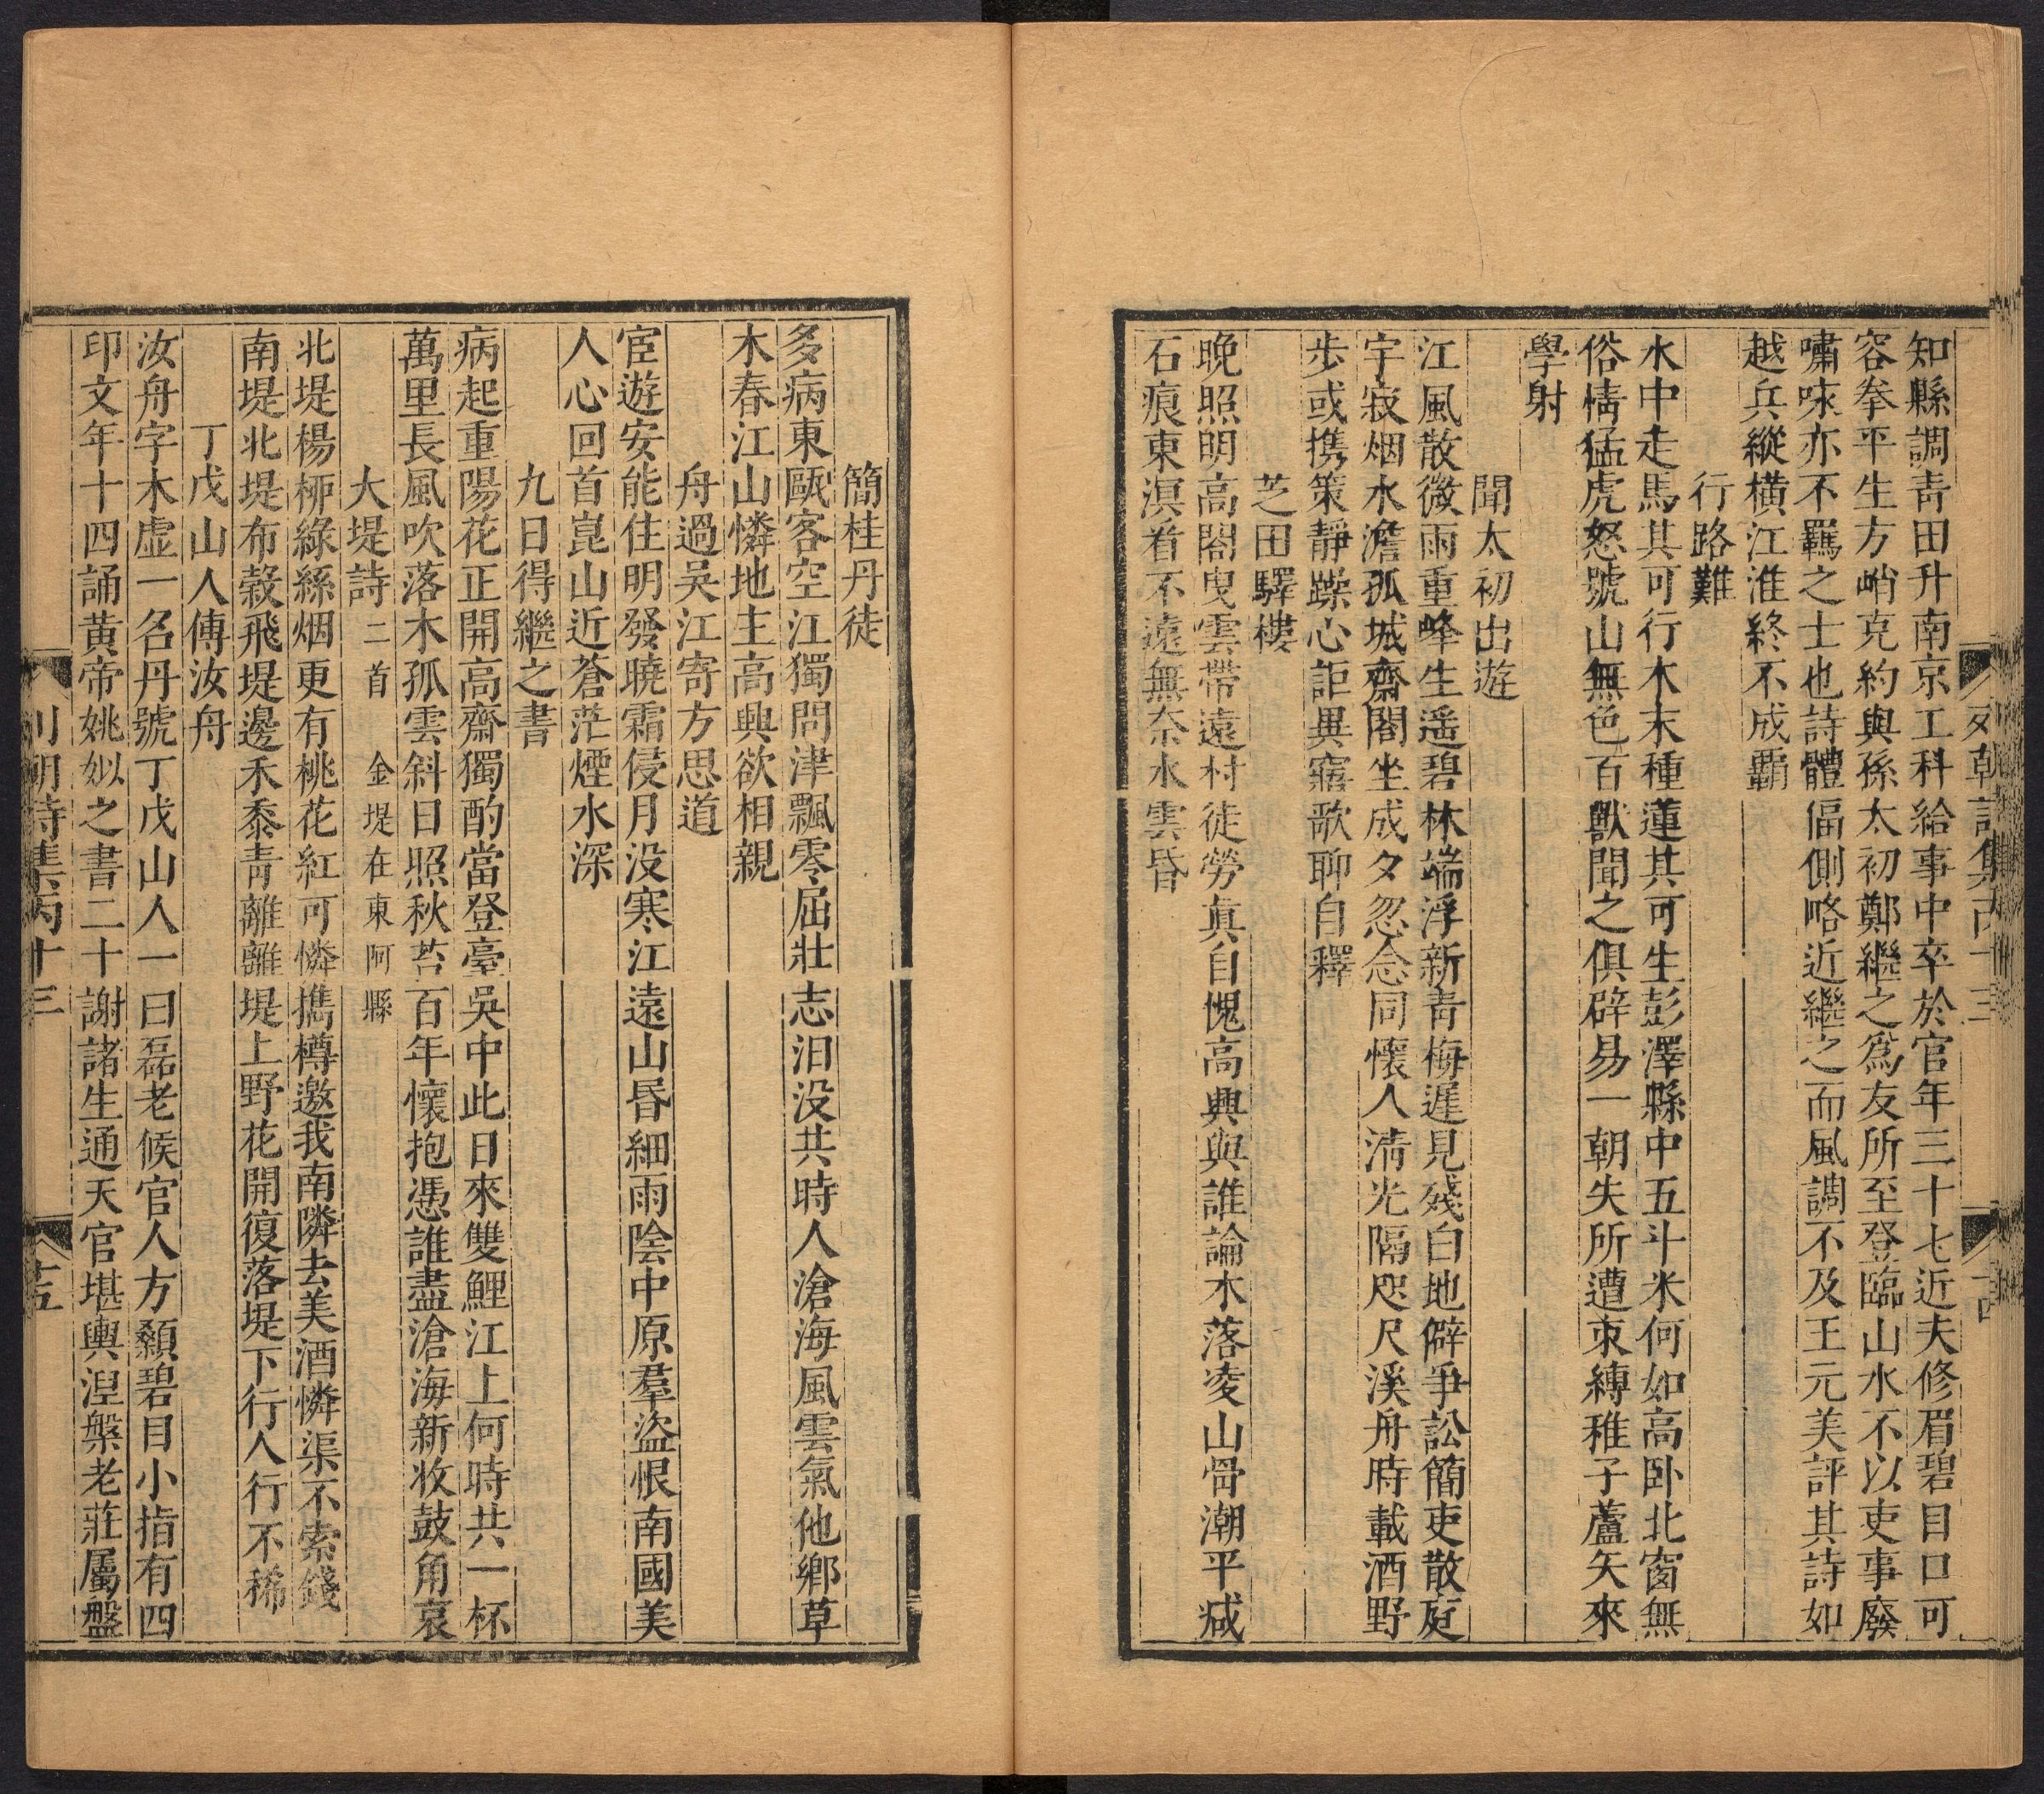 知縣調靑田升南京工科給事中卒於官年三十七近夫修眉碧目口可
容拳平生方峭克約與孫太初鄭繼之爲友所至登臨山水不以吏事廢
嘯咏亦不羈之士也詩體偪側略近繼之而風調不及王元美評其詩如
越兵縱橫江淮終不成霸
行路難
水中走馬其可行木末種蓮其可生彭澤縣中五斗米何如高卧北窗無
俗情猛虎怒號山無色百獸聞之俱辟易一朝失所遭束縛稚子蘆矢來
學射
聞太初出遊
江風散微雨重峰生遥碧林端浮新靑梅遲見殘白地僻爭訟簡吏散庭
宇寂烟水澹孤城齋閣坐成夕忽念同懷人淸光隔咫尺溪舟時載酒野
步或携策靜躁心詎異寤歌聊自釋
芝田驛樓
晚照明高閣曳雲帶遠村徒勞眞自愧高興與誰論木落凌山骨潮平减
石痕東溟看不遠無奈水雲昏
簡桂丹徒
多病東甌客空江獨問津飄零屈壯志汨没共時人滄海風雲氣他鄉草
木春江山憐地主高興欲相親
舟過吴江寄方思道
宦遊安能住明發曉霜侵月没寒江遠山昏細雨陰中原羣盜恨南國美
人心回首崑山近蒼茫煙水深
九日得繼之書
病起重陽花正開高齋獨酌當登臺吳中此日來雙鯉江上何時共一杯
萬里長風吹落木孤雲斜日照秋苔百年懷抱憑誰盡滄海新收鼓角哀
大堤詩二首 金堤在東阿縣
北堤楊柳綠絲烟更有桃花紅可憐攜樽邀我南隣去美酒憐渠不索錢
南堤北堤布榖飛堤邊禾黍靑離離堤上野花開復落堤下行人行不稀
丁戊山人傅汝舟
汝舟字木虛一名丹號丁戊山人一曰磊老候官人方顙碧目小指有四
印文年十四誦黄帝姚姒之書二十謝諸生通天官堪輿涅槃老莊屬盤
列朝詩集丙十三